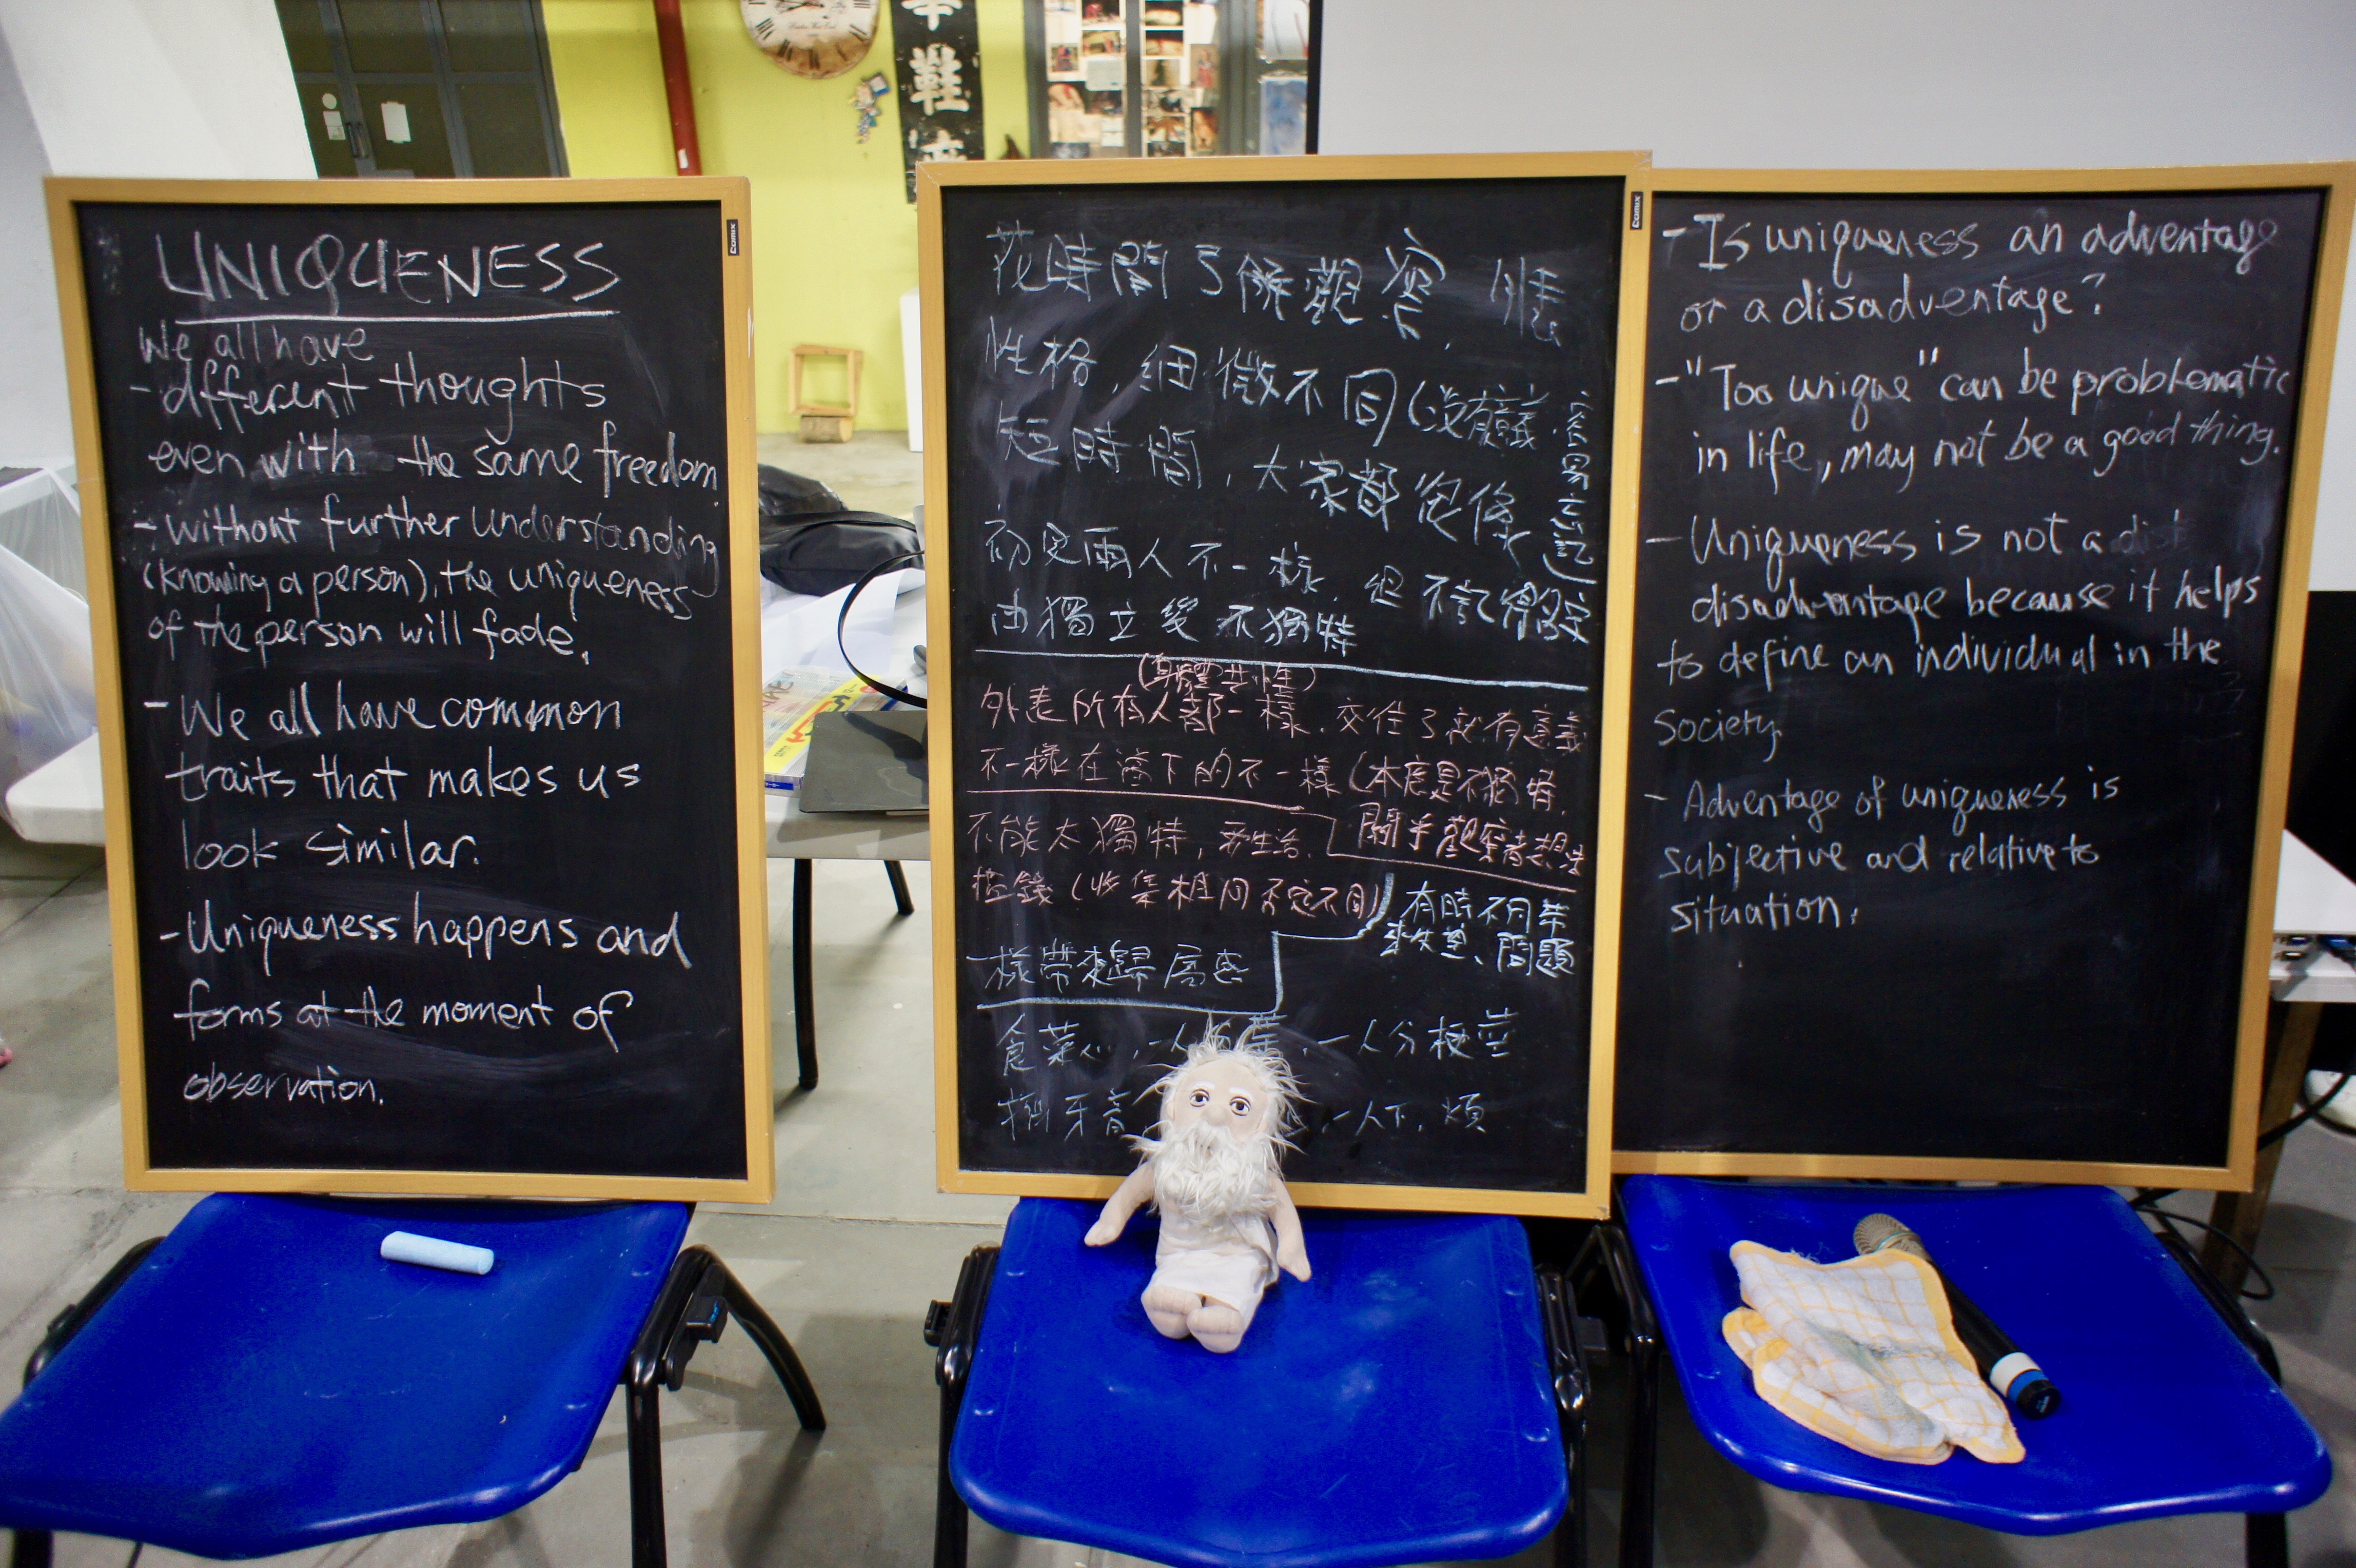 UNIQUENESS
We all have
- different thoughts
even with the same freedom
- without further understanding
(knowing a person), the uniqueness
of the person will fade.
- We all have common
traits that makes us
look similar.
- Uniqueness happens and
forms at the moment of
observation.
Comix
花時間了解觀察,
性格,細微不同(沒有意義,容易忘記)
短時間,大家都
初見兩人不一樣,但不記得
由獨立變不獨特
(身體共性)
外表所有人都一樣,交往了就有意義
不一樣在當下的不一樣(本底是不獨特,
關乎觀察者想法
不能太獨特,
(收集相同否定不同)
有時不同帶
來失望、問題
一樣帶來歸屬感
食菜心,一人,一人分梗
一人下,煩
Comix
- Is uniqueness an adventage
or a disadventage?
- "Too unique" can be problematic
in life, may not be a good thing.
- Uniqueness is not a dist
disadventage because it helps
to define an individual in the
society.
- Adventage of uniqueness is
subjective and relative to
situation.
鞋